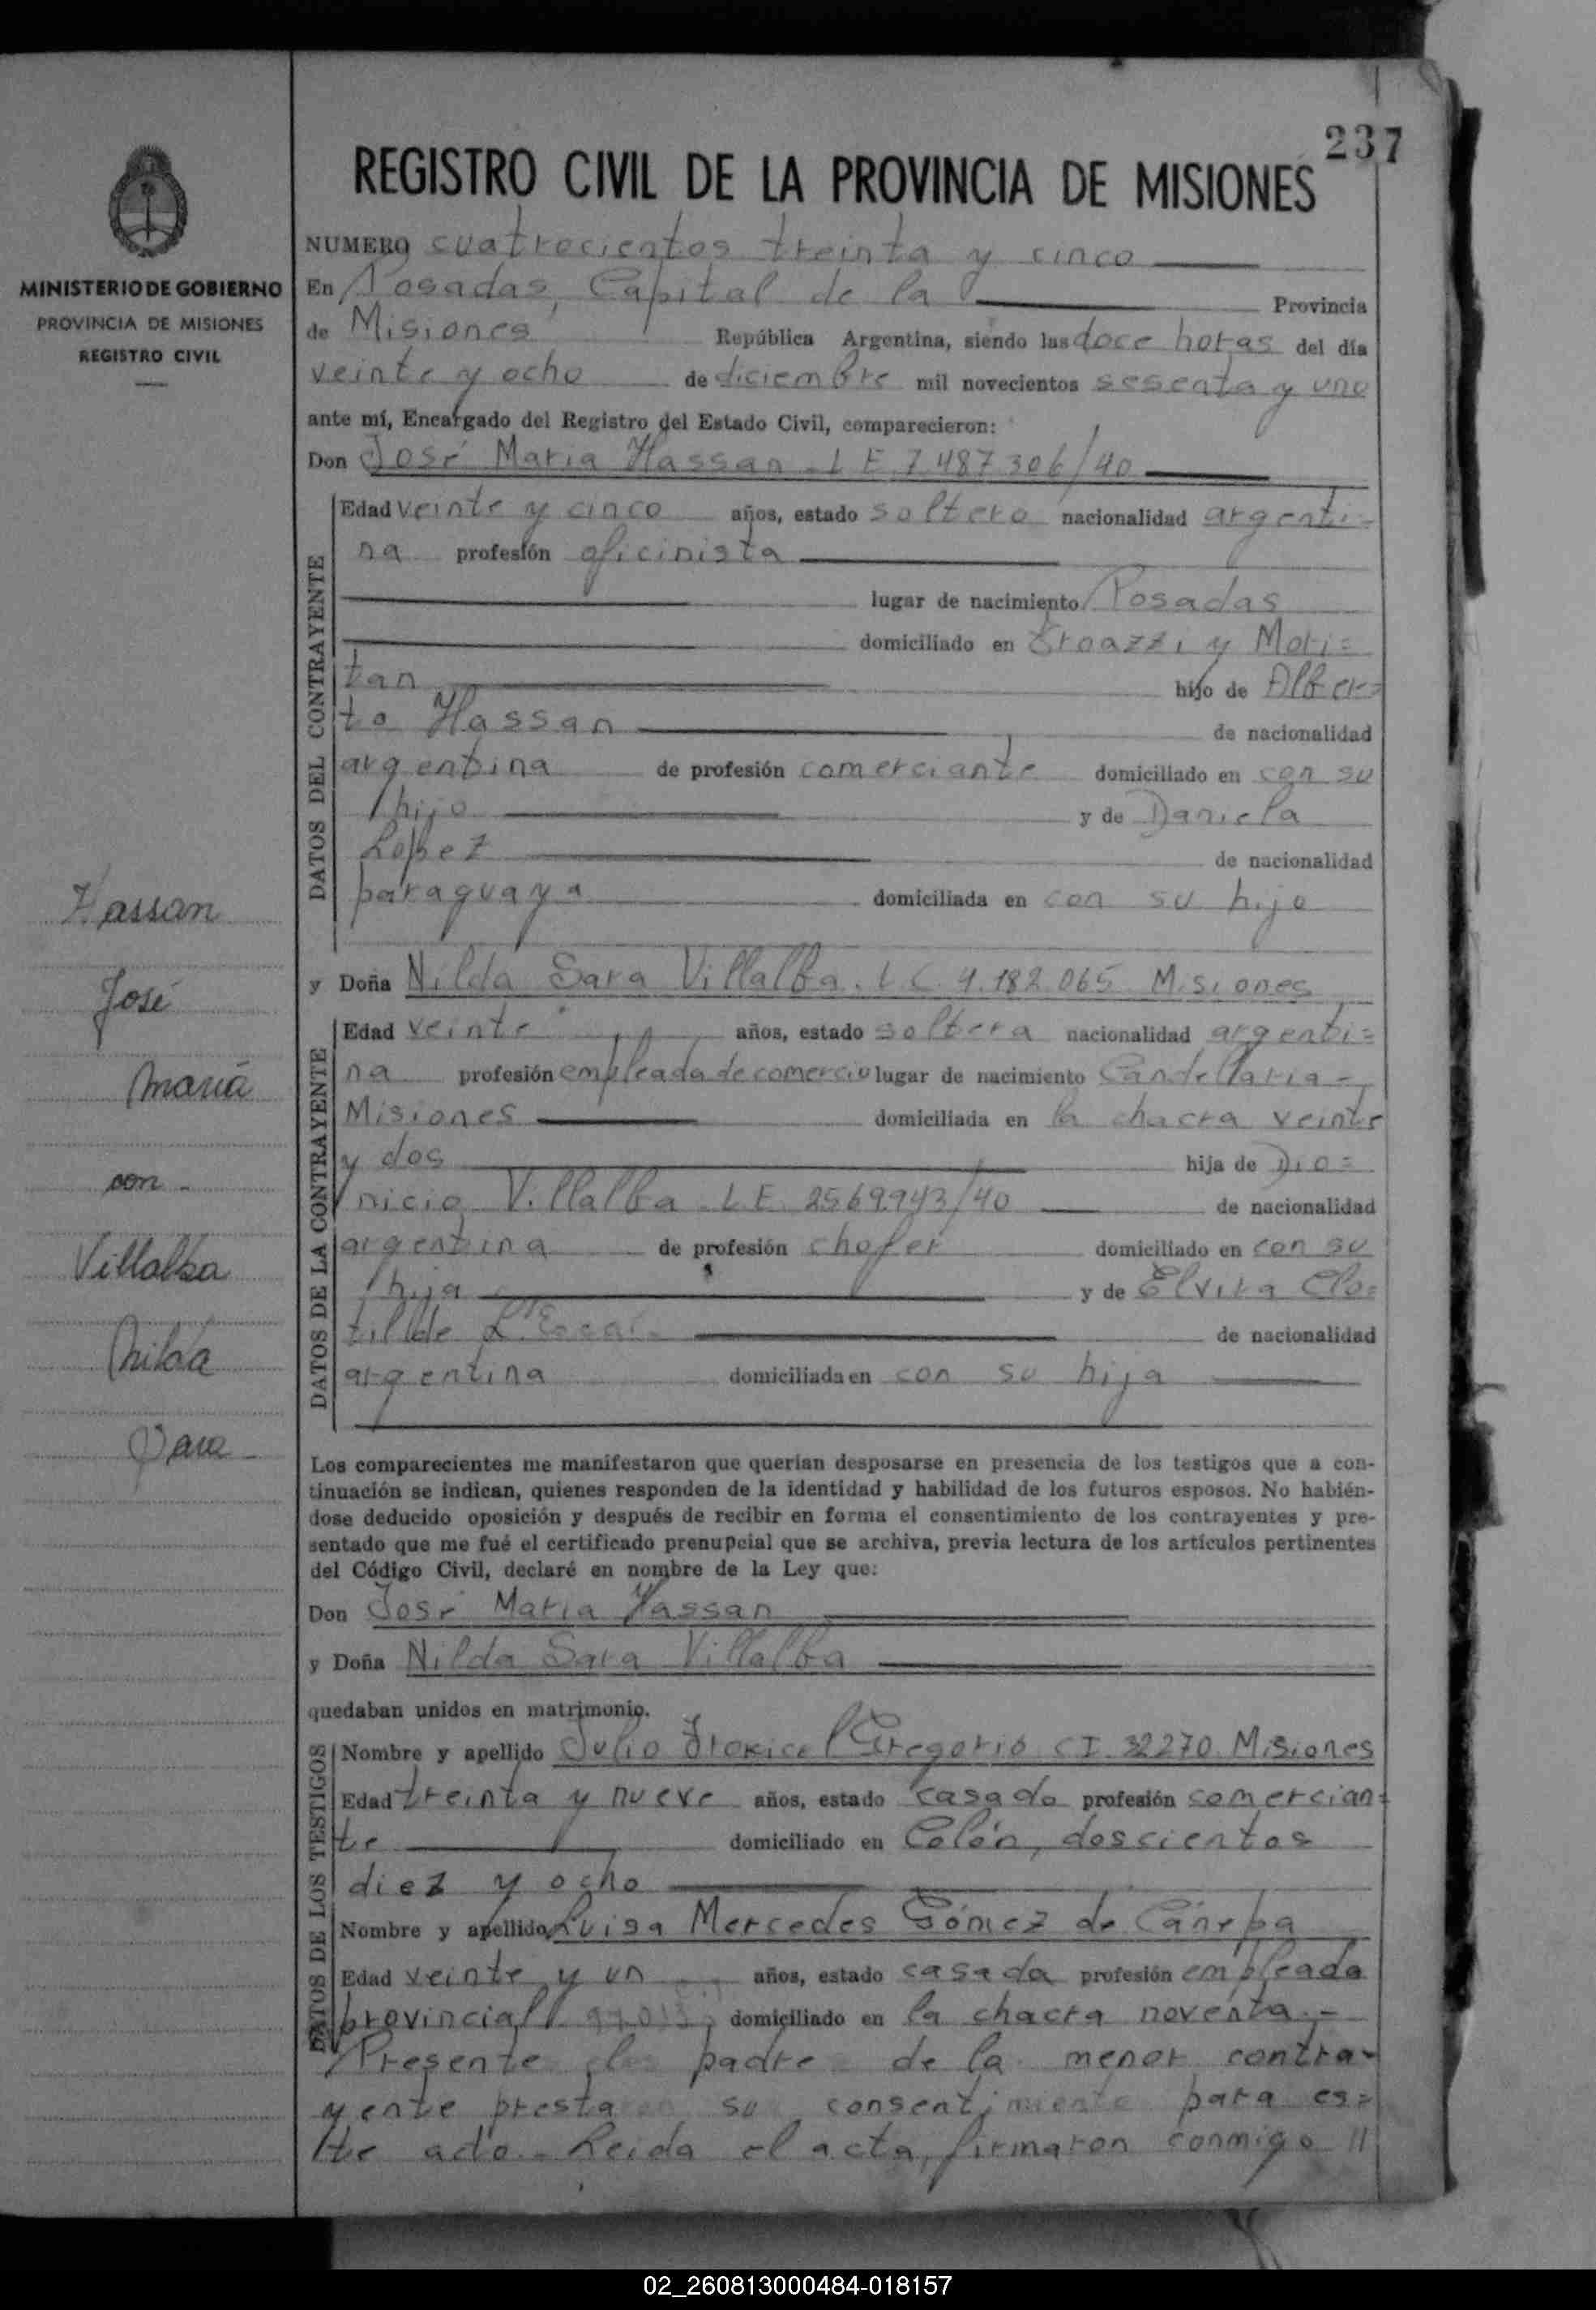 237
REGISTRO CIVIL DE LA PROVINCIA DE MISIONES
MINISTERIO DE GOBIERNO
PROVINCIA DE MISIONES
REGISTRO CIVIL
Hassan
José
María
con
Villalba
Nilda
Sara
NUMERO cuatrocientos treinta y cinco
En Posadas, Capital de la Provincia
de Misiones República Argentina, siendo las doce horas del día
veinte y ocho de diciembre mil novecientos sesenta y uno
ante mí, Encargado del Registro del Estado Civil, comparecieron:
Don José Maria Hassan - L E 7.487306/40
DATOS DEL CONTRAYENTE
Edad veinte y cinco años, estado soltero nacionalidad argenti=
na profesión oficinista
lugar de nacimiento Posadas
domiciliado en y Mori=
tan hijo de Alber=
to Hassan de nacionalidad
argentina de profesión comerciante domiciliado en con su
hijo y de Daniela
Lopez de nacionalidad
paraguaya domiciliada en con su hijo
y Doña Nilda Sara Villalba. L C 4.182.065 Misiones
DATOS DE LA CONTRAYENTE
Edad veinte años, estado soltera nacionalidad argenti=
na profesión empleada de comercio lugar de nacimiento Candellaria -
Misiones domiciliada en la chacra veinte
y dos hija de Dio=
nicio Villalba - L E. 2569.943/40 de nacionalidad
argentina de profesión chofer domiciliado en con su
hija y de Elvira Clo=
tilde de nacionalidad
argentina domiciliada en con su hija
Los comparecientes me manifestaron que querían desposarse en presencia de los testigos que a con-
tinuación se indican, quienes responden de la identidad y habilidad de los futuros esposos. No habién-
dose deducido oposición y después de recibir en forma el consentimiento de los contrayentes y pre-
sentado que me fué el certificado prenupcial que se archiva, previa lectura de los artículos pertinentes
del Código Civil, declaré en nombre de la Ley que:
Don José Maria Hassan
y Doña Nilda Sara Villalba
quedaban unidos en matrimonio.
DATOS DE LOS TESTIGOS
Nombre y apellido Julio Gregorio C I. 32270 Misiones
Edad treinta y nueve años, estado casado profesión comercian=
te domiciliado en Colón, doscientos
diez y ocho
Nombre y apellido Luisa Mercedes Gómez de Cánepa
Edad veinte y un años, estado casada profesión empleada
provincial domiciliado en la chacra noventa.-
Presente padre de la menor contra-
yente presta su consentimiento para es=
te acto.- Leida el acta, firmaron conmigo //
02_260813000484-018157